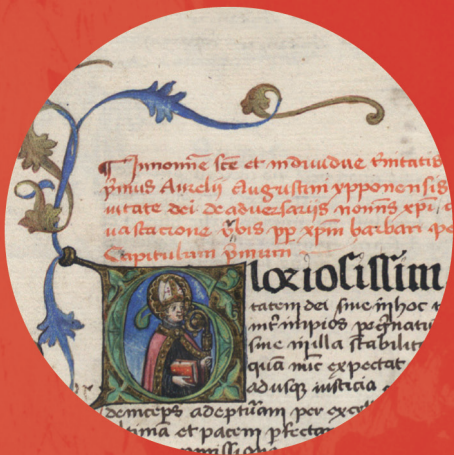 ¶ Jn nomīe sc̄e et indiuidue t̄nitatis
p̄mus Aurelij Augustini ypponensis
uitate dei de aduersarijs nomīs xp̄i
uastacione v̄bis pp̄ xp̄m barbari
Capitulum p̄mum
Gloriosissim
tatem dei siue in hoc t
int̄ impios
siue in illa stabilit
quā nūc expectat
adusq̨ iusticia
deinceps adeptuām per excell
ltima et pacem p̄fecta